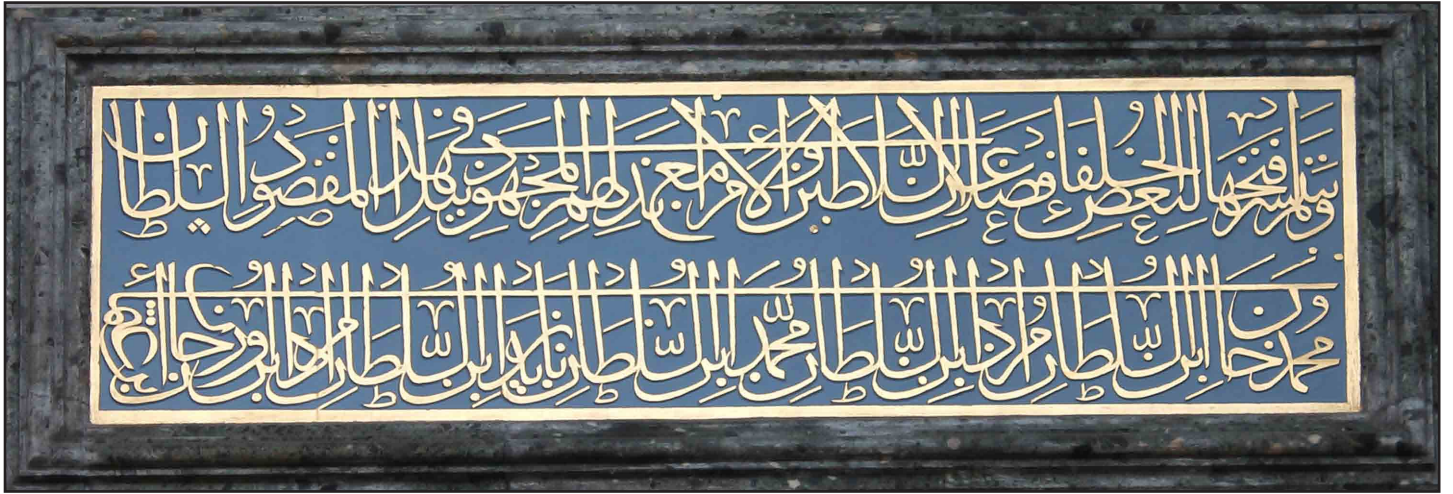 ولم يتيسر فتحها لبعض الخلفاء فضلا عن السلاطين والأمراء مع بذلهم المجهود في نيل هذا المقصود السلطان
محمد خان ابن السلطان مراد ابن السلطان محمد ابن السلطان بايزيد ابن السلطان مراد ابن اورخان ابن عثمان